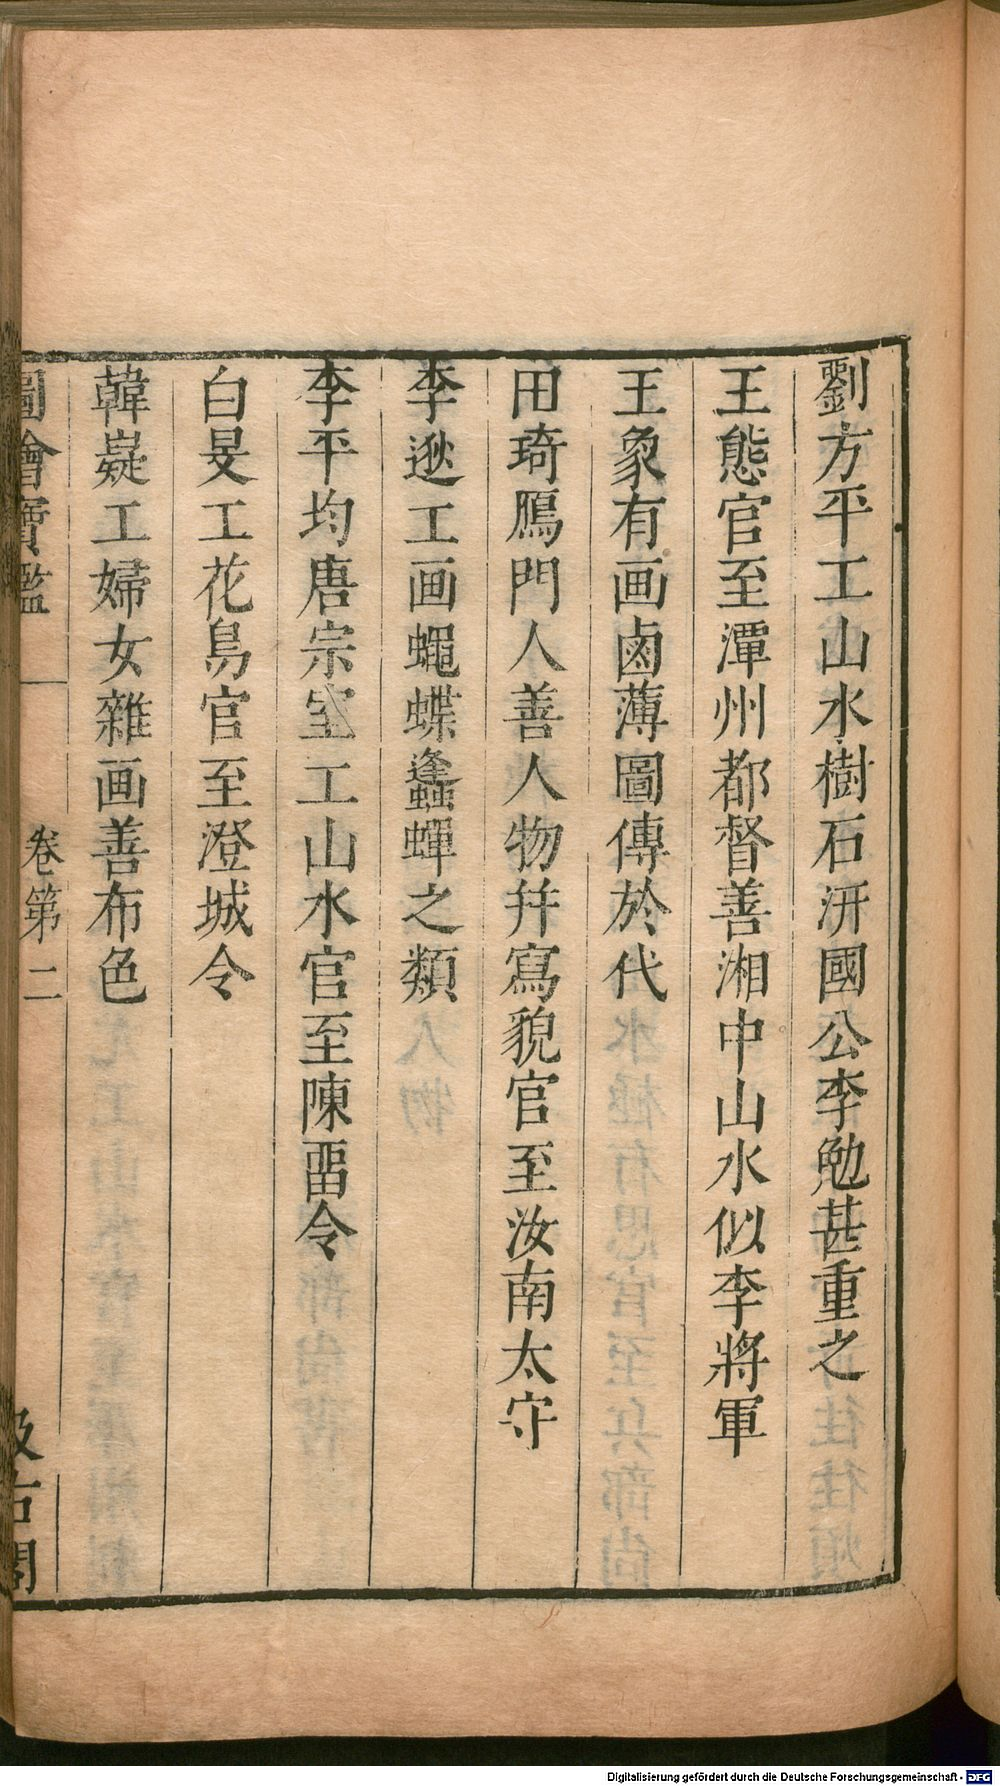 劉方平工山水樹石汧國公李勉甚重之
王熊官至潭州都督善湘中山水似李將軍
王象有画鹵薄圖傳於代
田琦鴈門人善人物幷寫貌官至汝南太守
李逖工画蠅蝶蠭蟬之類
李平均唐宗室工山水官至陳畱令
白旻工花鳥官至澄城令
韓嶷工婦女雜画善布色
圖繪寶鑑 卷第二 汲古閣
Digitalisierung gefördert durch die Deutsche Forschungsgemeinschaft - DFG